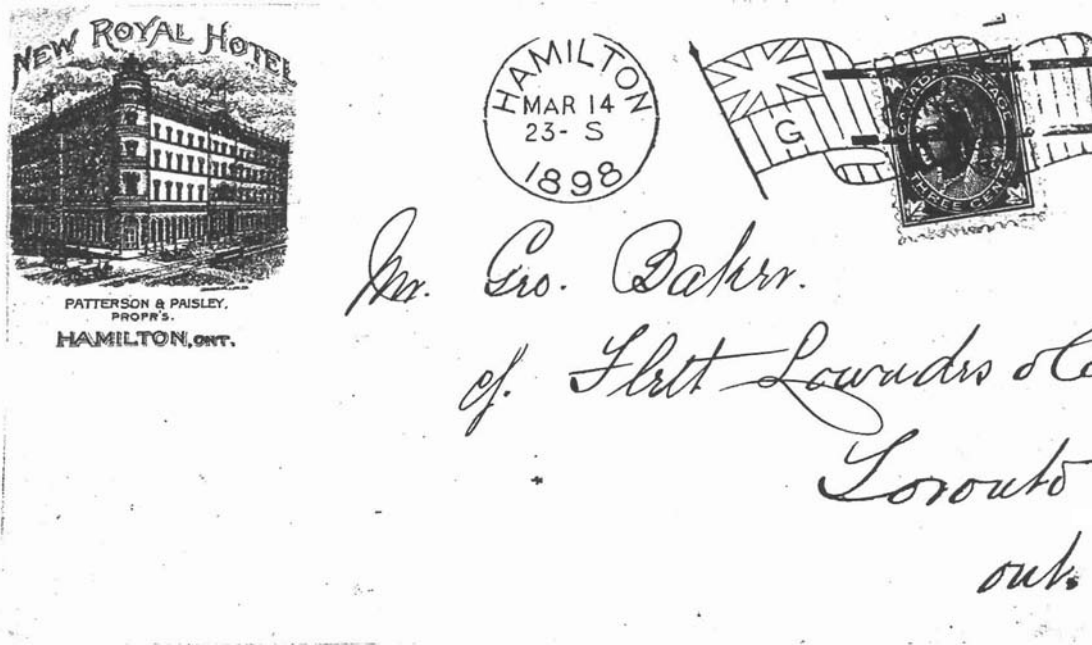 NEW ROYAL HOTEL
PATTERSON & PAISLEY,
PROPR'S.
HAMILTON, ONT.
HAMILTON
MAR 14
23- S
1898
G
CANADA POSTAGE
THREE CENTS
Mr. Geo. Baker.
c/. Flett Lowndes & Co
Toronto
Ont.